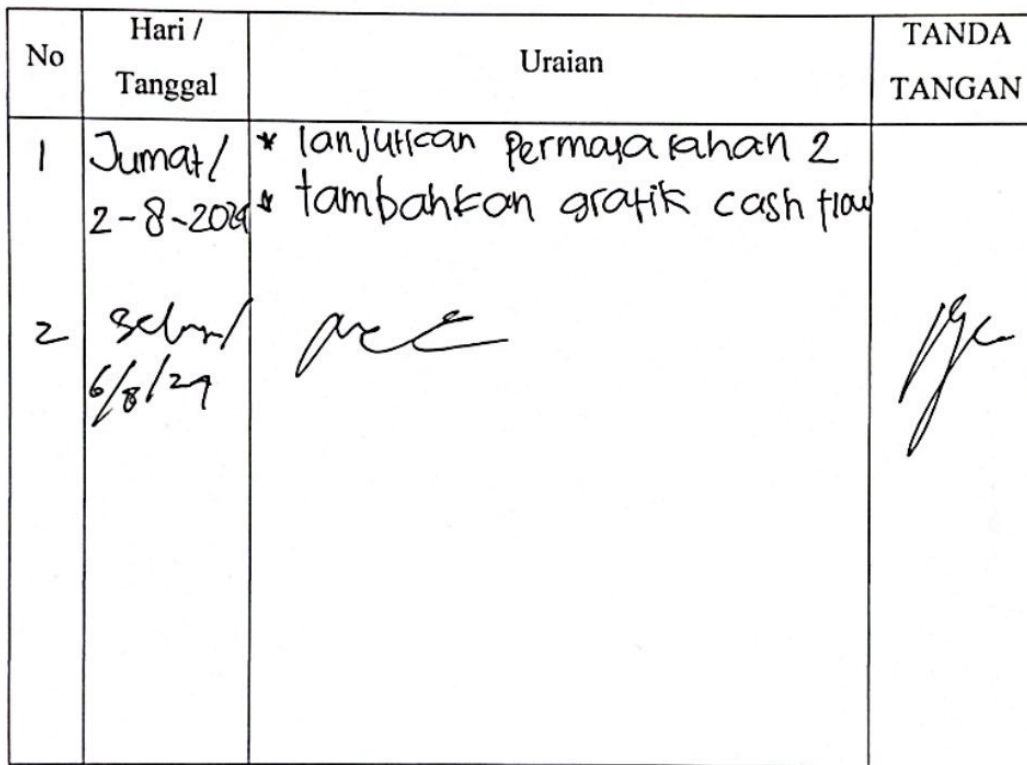 No
Hari /
Tanggal
Uraian
TANDA
TANGAN
1
Jumat/
2-8-2024
* lanjutkan Permasalahan 2
* tambahkan grafik cash flow
2
Selasa/
6/8/24